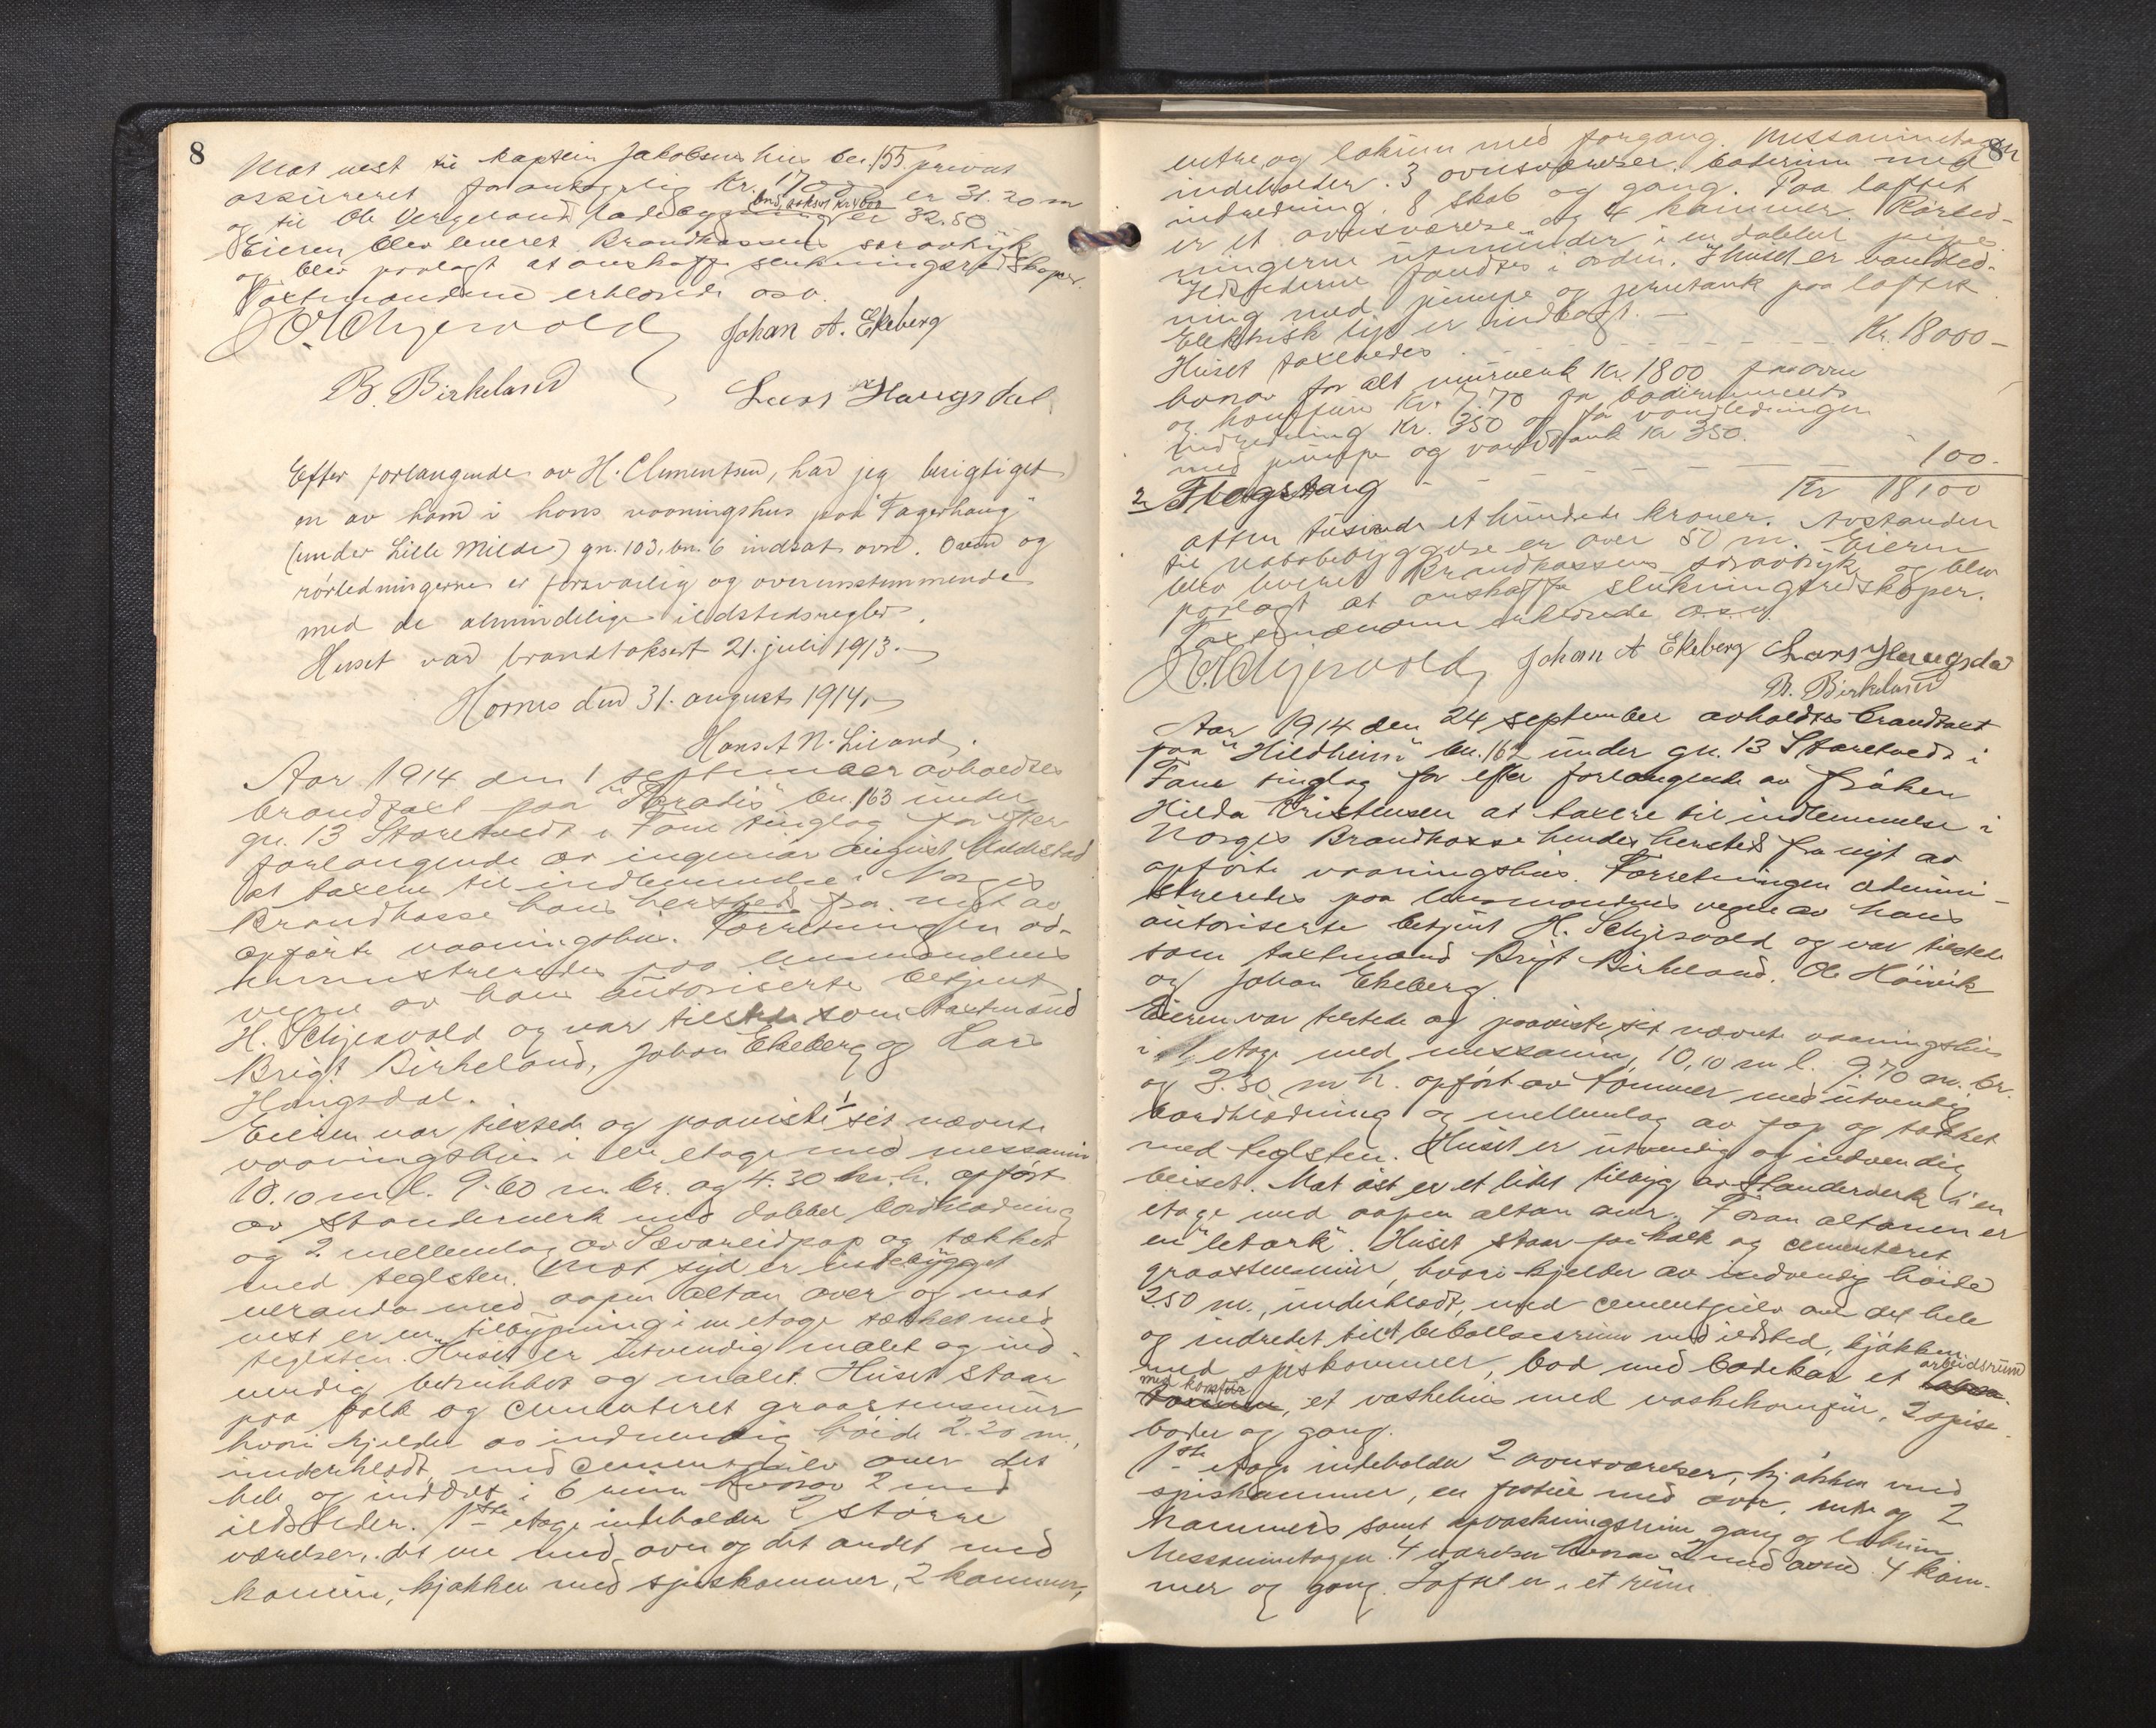 8
Mot vest til kaptein Jakobsens hus bn. 155 privat
assureret for antagelig Kr. 17000 er 31.20 m
og til Ole Vergelands ladebygning er 32.50
Eieren blev leveret Brandkassens særavtryk
og blev paalagt at anskaffe slukningsredskaper.
Taxtmændene erklærede osv.
H. Schjervold Johan A. Ekeberg
B. Birkeland Lars Haugsdal
Efter forlangende av H. Clementsen, har jeg besigtiget
en av ham i hans vaaningshus paa "Fagerhaug"
(under Lille Milde) gn. 103, bn. 6 indsat ovn. Ovnen og
rørledningerne er forsvarlig og overensstemmende
med de almindelige ildstedsregler.
Huset var brandtaksert 21. juli 1913.
Hornes den 31. august 1914.
Hans A N. Liland.
Aar 1914 den 1 september avholdtes
brandtaxt paa "Paradis" bn. 163 under
gn. 13 Storetvedt i Fane tinglag for efter
forlangende av ingeniør August
at taxere til indlemmelse i Norges
Brandkasse hans hersteds fra nyt av
opførte vaaningshus. Forretningen ad-
ministreredes paa lensmandens
vegne av hans autoriserte betjent
H. Schjervold og var tilstede som taxtmænd
Brigt Birkeland, Johan Ekeberg og Lars
Haugsdal.
Eieren var tilstede og paaviste 1 sit nævnte
vaaningshus i en etage med messanin
10.10 m l. 9.60 m. br. og 4.30 m. h. opført
av standerverk med dobbel bordklædning
og 2 mellemlag av Sævareidpap og tækket
med teglsten. Mot syd er indebygget
veranda med aapen altan over og mot
vest er en tilbygning i en etage tækket med
teglsten. Huset er utvendig malet og ind-
vendig betrukket og malet. Huset staar
paa kalk og cementeret graastensmur
hvori kjelder av indvendig høide 2.20 m,
underklædt, med cementgulv over det
hele og inddelt i 6 rum hvorav 2 med
ildsteder. 1ste etage indeholder 2 større
værelser, det ene med ovn og det andet med
kamin, kjøkken med spiskammer, 2 kammer,
8
entre og lokum med forgang. Messaninetagen
indeholder 3 ovnsværelser, baderum med
indredning, 8 skab og gang. Paa loftet
er et ovnsværelse og 4 kammer. Rørled-
ningerne utmunder i en dobbel pipe.
Ildstederne fandtes i orden. I huset er vandled-
ning med pumpe og jerntank paa loftet
Elektrisk lys er indlagt. —
Huset taxeredes - - - - - - - Kr. 18000 —
hvorav for alt murverk Kr. 1800 for ovne
og komfur Kr. 770 for baderummets
indredning Kr. 350 og for vandledningen
med pumpe og vandtank Kr 350.
2 Flagstang - - - - - 100.
Kr 18100
atten tusinde et hundrede kroner. Avstanden
til nabobebyggelse er over 50 m. Eieren
blev leveret Brandkassens særavtryk og blev
paalagt at anskaffe slukningsredskaper.
Taxtmændene erklærede o.s.v.
H. Schjervold Johan A Ekeberg Lars Haugsdal
B. Birkeland
Aar 1914 den 24 september avholdtes brandtaxt
paa "Hildheim" bn. 162 under gn. 13 Storetvedt i
Fane tinglag for efter forlangende av frøken
Hilda Cristensen at taxere til indlemmelse i
Norges Brandkasse hendes hersteds fra nyt av
opførte vaaningshus. Forretningen admini-
streredes paa lensmandens vegne av hans
autoriserte betjent H. Schjervold og var tilstede
som taxtmænd Brigt Birkeland, Ole Høivik
og Johan Ekeberg.
Eieren var tilstede og paaviste sit nævnte vaaningshus
i 1 etage med messanin, 10,10 m l. 9.70 m. br.
og 3.30 m h. opført av tømmer med utvendig
bordklædning og mellemlag av pap og tækket
med teglsten. Huset er utvendig og indvendig
beiset. Mot øst er et litet tilbyg av standerverk i en
etage med aapen altan over. Foran altanen er
en "letark". Huset staar paa kalk og cementeret
graastensmur, hvori kjelder av indvendig høide
2.50 m., underklædt, med cementgulv over det hele
og indredet til 1 beboelsesrum med ildsted, kjøkken
med spiskammer, bad med badekar et arbeidsrum
med komfur, et vaskehus med vaskekomfur, 2 spise-
boder og gang.
1ste etage indeholder 2 ovnsværelser, kjøkken med
spiskammer, en peisestue med ovn, entre og 2
kammers samt opvaskningsrum gang og lokum
Messaninetagen 4 værelser hvorav 2 med ovne 4 kam-
mer og gang. Loftet er i et rum.